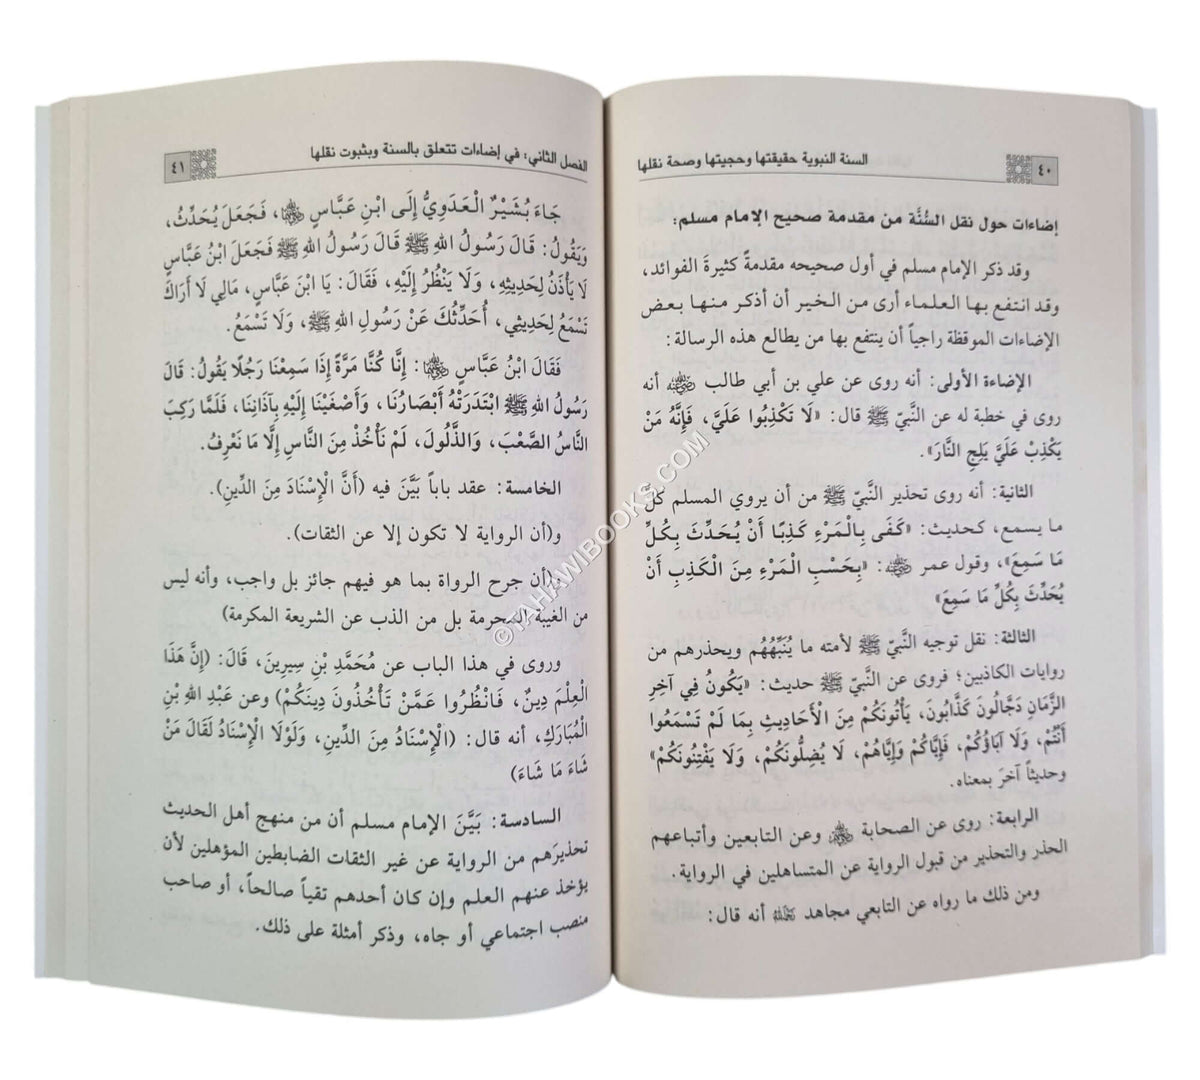 السنة النبوية حقيقتها وحجيتها وصحة نقلها
٤٠
إضاءات حول نقل السُّنَّة من مقدمة صحيح الإمام مسلم:
وقد ذكر الإمام مسلم في أول صحيحه مقدمةً كثيرةَ الفوائد،
وقد انتفع بها العلماء أرى من الخير أن أذكر منها بعض
الإضاءات الموقظة راجياً أن ينتفع بها من يطالع هذه الرسالة:
الإضاءة الأولى: أنه روى عن علي بن أبي طالب رضي الله عنه أنه
روى في خطبة له عن النَّبيّ ﷺ قال: «لَا تَكْذِبُوا عَلَيَّ، فَإِنَّهُ مَنْ
يَكْذِبْ عَلَيَّ يَلِجِ النَّارَ».
الثانية: أنه روى تحذير النَّبيّ ﷺ من أن يروي المسلم كلَّ
ما يسمع، كحديث: «كَفَى بِالْمَرْءِ كَذِبًا أَنْ يُحَدِّثَ بِكُلِّ
مَا سَمِعَ»، وقول عمر رضي الله عنه: «بِحَسْبِ الْمَرْءِ مِنَ الْكَذِبِ أَنْ
يُحَدِّثَ بِكُلِّ مَا سَمِعَ»
الثالثة: نقل توجيه النَّبيّ ﷺ لأمته ما يُنَبِّهُهُم ويحذرهم من
روايات الكاذبين؛ فروى عن النَّبيّ ﷺ حديث: «يَكُونُ فِي آخِرِ
الزَّمَانِ دَجَّالُونَ كَذَّابُونَ، يَأْتُونَكُمْ مِنَ الْأَحَادِيثِ بِمَا لَمْ تَسْمَعُوا
أَنْتُمْ، وَلَا آبَاؤُكُمْ، فَإِيَّاكُمْ وَإِيَّاهُمْ، لَا يُضِلُّونَكُمْ، وَلَا يَفْتِنُونَكُمْ»
وحديثاً آخرَ بمعناه.
الرابعة: روى عن الصحابة رضي الله عنهم وعن التابعين وأتباعهم
الحذر والتحذير من قبول الرواية عن المتساهلين في الرواية.
ومن ذلك ما رواه عن التابعي مجاهد رحمه الله أنه قال:
الفصل الثاني: في إضاءات تتعلق بالسنة وبثبوت نقلها
٤١
جَاءَ بُشَيْرٌ الْعَدَوِيُّ إِلَى ابْنِ عَبَّاسٍ رضي الله عنهما، فَجَعَلَ يُحَدِّثُ،
وَيَقُولُ: قَالَ رَسُولُ اللهِ ﷺ قَالَ رَسُولُ اللهِ ﷺ فَجَعَلَ ابْنُ عَبَّاسٍ
لَا يَأْذَنُ لِحَدِيثِهِ، وَلَا يَنْظُرُ إِلَيْهِ، فَقَالَ: يَا ابْنَ عَبَّاسٍ، مَالِي لَا أَرَاكَ
تَسْمَعُ لِحَدِيثِي، أُحَدِّثُكَ عَنْ رَسُولِ اللهِ ﷺ، وَلَا تَسْمَعُ.
فَقَالَ ابْنُ عَبَّاسٍ رضي الله عنهما: إِنَّا كُنَّا مَرَّةً إِذَا سَمِعْنَا رَجُلًا يَقُولُ: قَالَ
رَسُولُ اللهِ ﷺ ابْتَدَرَتْهُ أَبْصَارُنَا، وَأَصْغَيْنَا إِلَيْهِ بِآذَانِنَا، فَلَمَّا رَكِبَ
النَّاسُ الصَّعْبَ، وَالذَّلُولَ، لَمْ نَأْخُذْ مِنَ النَّاسِ إِلَّا مَا نَعْرِفُ.
الخامسة: عقد باباً بَيَّنَ فيه (أَنَّ الْإِسْنَادَ مِنَ الدِّينِ).
و(أن الرواية لا تكون إلا عن الثقات).
و(أن جرح الرواة بما هو فيهم جائز بل واجب، وأنه ليس
من الغيبة المحرمة بل من الذب عن الشريعة المكرمة)
وروى في هذا الباب عن مُحَمَّدِ بْنِ سِيرِينَ، قَالَ: (إِنَّ هَذَا
الْعِلْمَ دِينٌ، فَانْظُرُوا عَمَّنْ تَأْخُذُونَ دِينَكُمْ) وعن عَبْدِ اللهِ بْنِ
الْمُبَارَكِ، أنه قال: (الْإِسْنَادُ مِنَ الدِّينِ، وَلَوْلَا الْإِسْنَادُ لَقَالَ مَنْ
شَاءَ مَا شَاءَ)
السادسة: بَيَّنَ الإمام مسلم أن من منهج أهل الحديث
تحذيرَهم من الرواية عن غير الثقات الضابطين المؤهلين لأن
يؤخذ عنهم العلم وإن كان أحدهم تقياً صالحاً، أو صاحب
منصب اجتماعي أو جاه، وذكر أمثلة على ذلك.
©TAHAWIBOOKS.COM